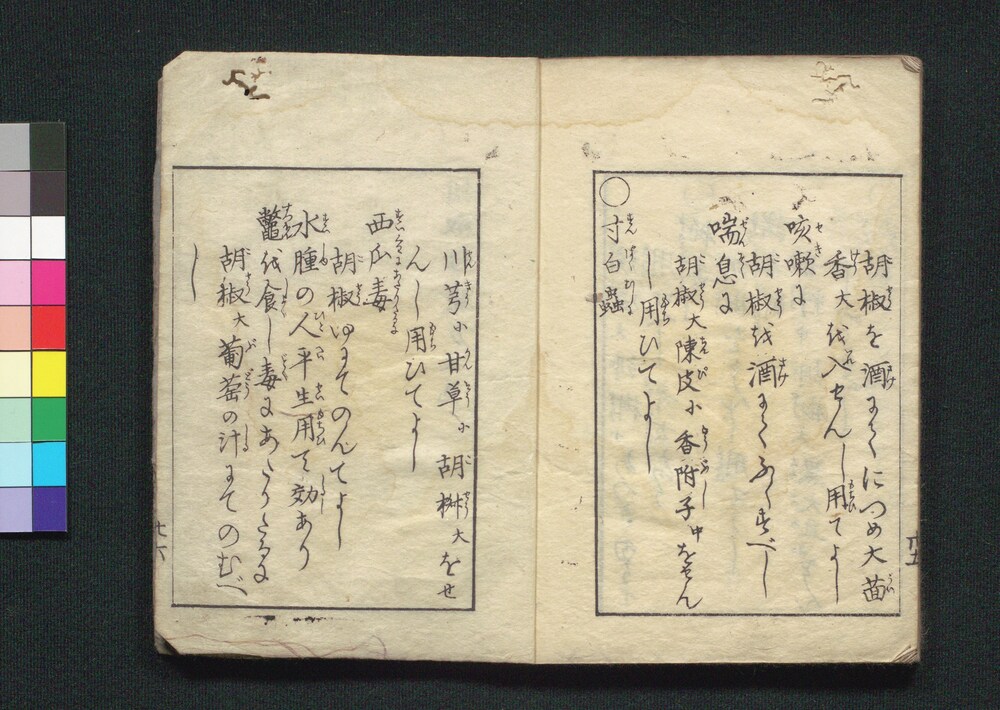 胡椒を酒にてにつめ大茴
香大を入せんし用てよし
咳嗽に
胡椒を酒にてふくすべし
喘息に
胡椒大陳皮小香附子中をせん
し用ひてよし
○寸白蟲
川芎小甘草小胡椒大をせ
んし用ひてよし
西瓜毒
胡椒ゆにてのんてよし
水腫の人平生用て効あり
鼈を食し毒にあたりたるに
胡椒大葡萄の汁にてのむべ
し